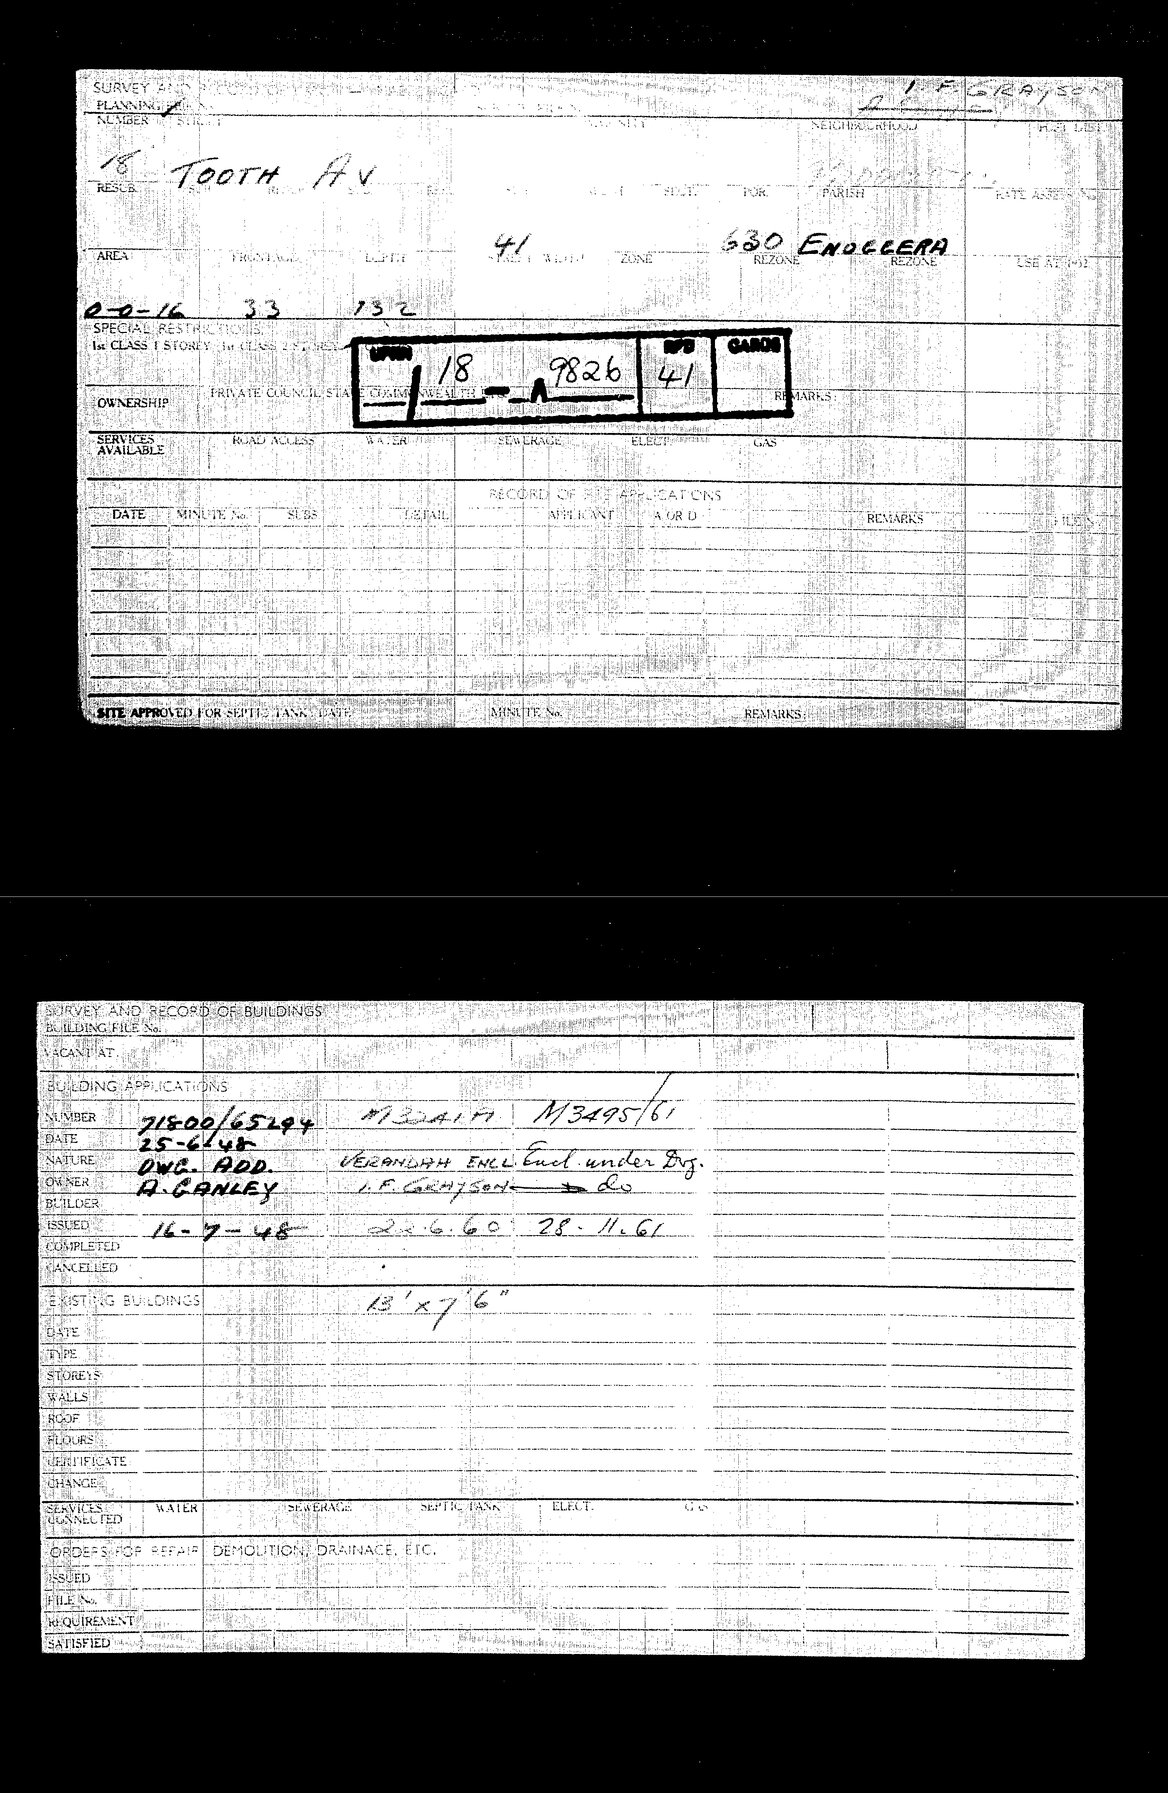 SURVEY AND RECORD OF
I. F. GRAYSON
PLANNING FILE No.
NUMBER STREET NEIGHBOURHOOD
18 TOOTH AV
RESUB. POR. PARISH RATE ASSES. No.
41 630 ENOGGERA
AREA FRONTAGE DEPTH STREET WIDTH ZONE REZONE REZONE USE AT
0-0-16 33 132
SPECIAL RESTRICTIONS
1st CLASS 1 STOREY 1st CLASS 2 STOREY
RPD CARDS
18 - 9826 41
OWNERSHIP PRIVATE COUNCIL STATE COMMONWEALTH REMARKS
SERVICES AVAILABLE ROAD ACCESS WATER SEWERAGE ELECT. GAS
RECORD OF SITE APPLICATIONS
DATE MINUTE No. SUBS DETAIL APPLICANT A OR D REMARKS FILE No.
SITE APPROVED FOR SEPTIC TANK: DATE MINUTE No. REMARKS:
SURVEY AND RECORD OF BUILDINGS
BUILDING FILE No.
VACANT AT
BUILDING APPLICATIONS
NUMBER 71800/65294 M3495/61
DATE 25-6-48
NATURE DWG. ADD. VERANDAH ENCL. Encl. under Dwg.
OWNER A. GANLEY I. F. GRAYSON do
BUILDER
ISSUED 16-7-48 28.11.61
COMPLETED
CANCELLED
EXISTING BUILDINGS 13' x 7'6"
DATE
TYPE
STOREYS
WALLS
ROOF
FLOORS
CERTIFICATE
CHANGE
SERVICES CONNECTED WATER SEWERAGE SEPTIC TANK ELECT. GAS
ORDERS FOR REPAIR, DEMOLITION, DRAINAGE, ETC.
ISSUED
FILE No.
REQUIREMENT
SATISFIED